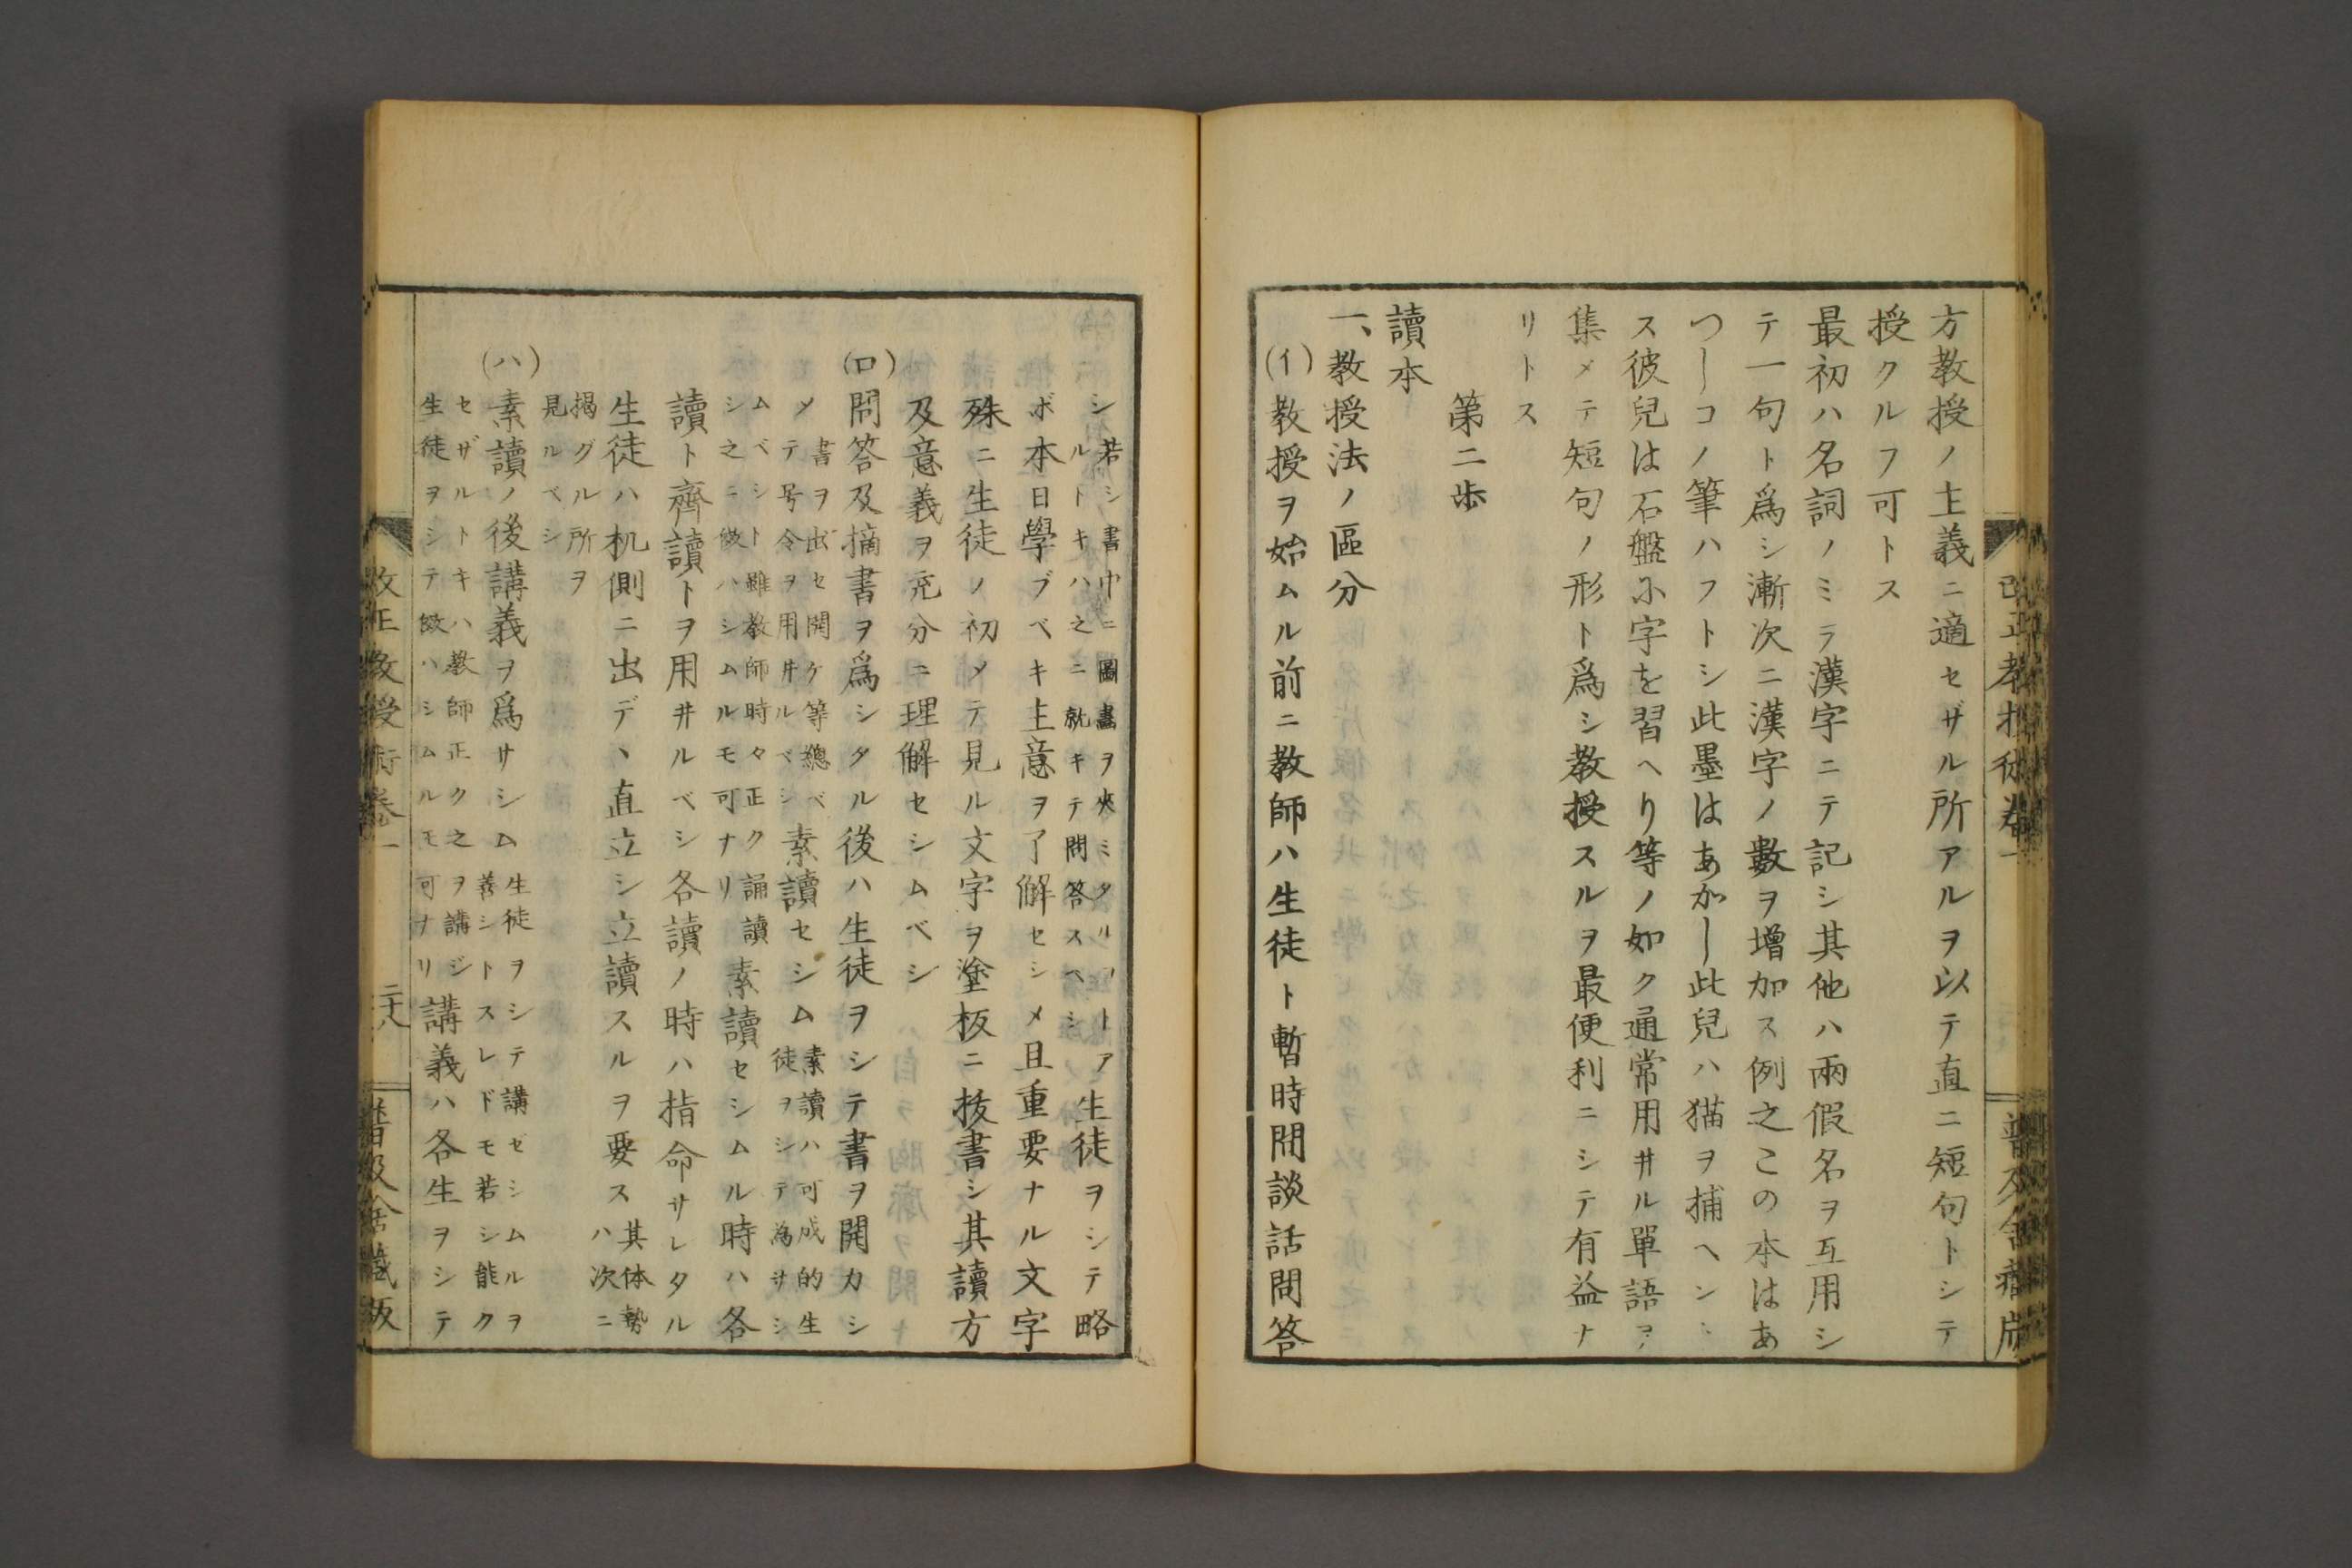 方教授ノ主義ニ適セザル所アルヲ以テ直ニ短句トシテ
授クルヿ可トス
最初ハ名詞ノミヲ漢字ニテ記シ其他ハ兩假名ヲ互用シ
テ一句ト爲シ漸次ニ漢字ノ數ヲ增加ス例之この本はあ
つーコノ筆ハフトシ此墨はあかー此兒ハ猫ヲ捕ヘン
ス彼兒は石盤に字を習へり等ノ如ク通常用井ル單語ヲ
集メテ短句ノ形ト爲シ教授スルヲ最便利ニシテ有益ナ
リトス
第二歩
讀本
一、教授法ノ區分
(イ)教授ヲ始ムル前ニ教師ハ生徒ト暫時問談話問答
シ若シ書中ニ圖畵ヲ夾ミタルヿア
ルトキハ之ニ就キテ問答スベシ生徒ヲシテ略
ボ本日學ブベキ主意ヲ了解セシメ且重要ナル文字
殊ニ生徒ノ初メテ見ル文字ヲ塗板ニ抜書シ其讀方
及意義ヲ充分ニ理解セシムベシ
(ロ)問答及摘書ヲ爲シタル後ハ生徒ヲシテ書ヲ開カシ
メ書ヲ出セ開ケ等總ベ
テ号令ヲ用井ルベシ素讀セシム素讀ハ可成的生
徒ヲシテ為サシ
ムベシト雖教師時々正ク誦讀
シ之ニ倣ハシムルモ可ナリ素讀セシムル時ハ各
讀ト齊讀トヲ用井ルベシ各讀ノ時ハ指命サレタル
生徒ハ机側ニ出デヽ直立シ立讀スルヲ要ス其体勢
ハ次ニ
揭グル所ヲ
見ルベシ
(ハ)素讀ノ後講義ヲ爲サシム生徒ヲシテ講ゼシムルヲ
善シトスレドモ若シ能ク
セザルトキハ教師正ク之ヲ講ジ
生徒ヲシテ倣ハシムルモ可ナリ講義ハ各生ヲシテ
改正教授術卷一
二十八
普及舍藏版